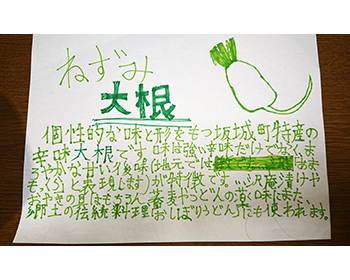 ねずみ
大根
個性的な味と形をもつ坂城町特産の
辛味大根です。味は強い辛味だけでなくま
ろやかな甘い後味(地元では「あま
もっくら」と表現します)が特徴です。沢庵漬けや
おやきの具はもちろん蕎麦やうどんの薬味、また
郷土の伝統料理「おしぼりうどん」にも使われます。